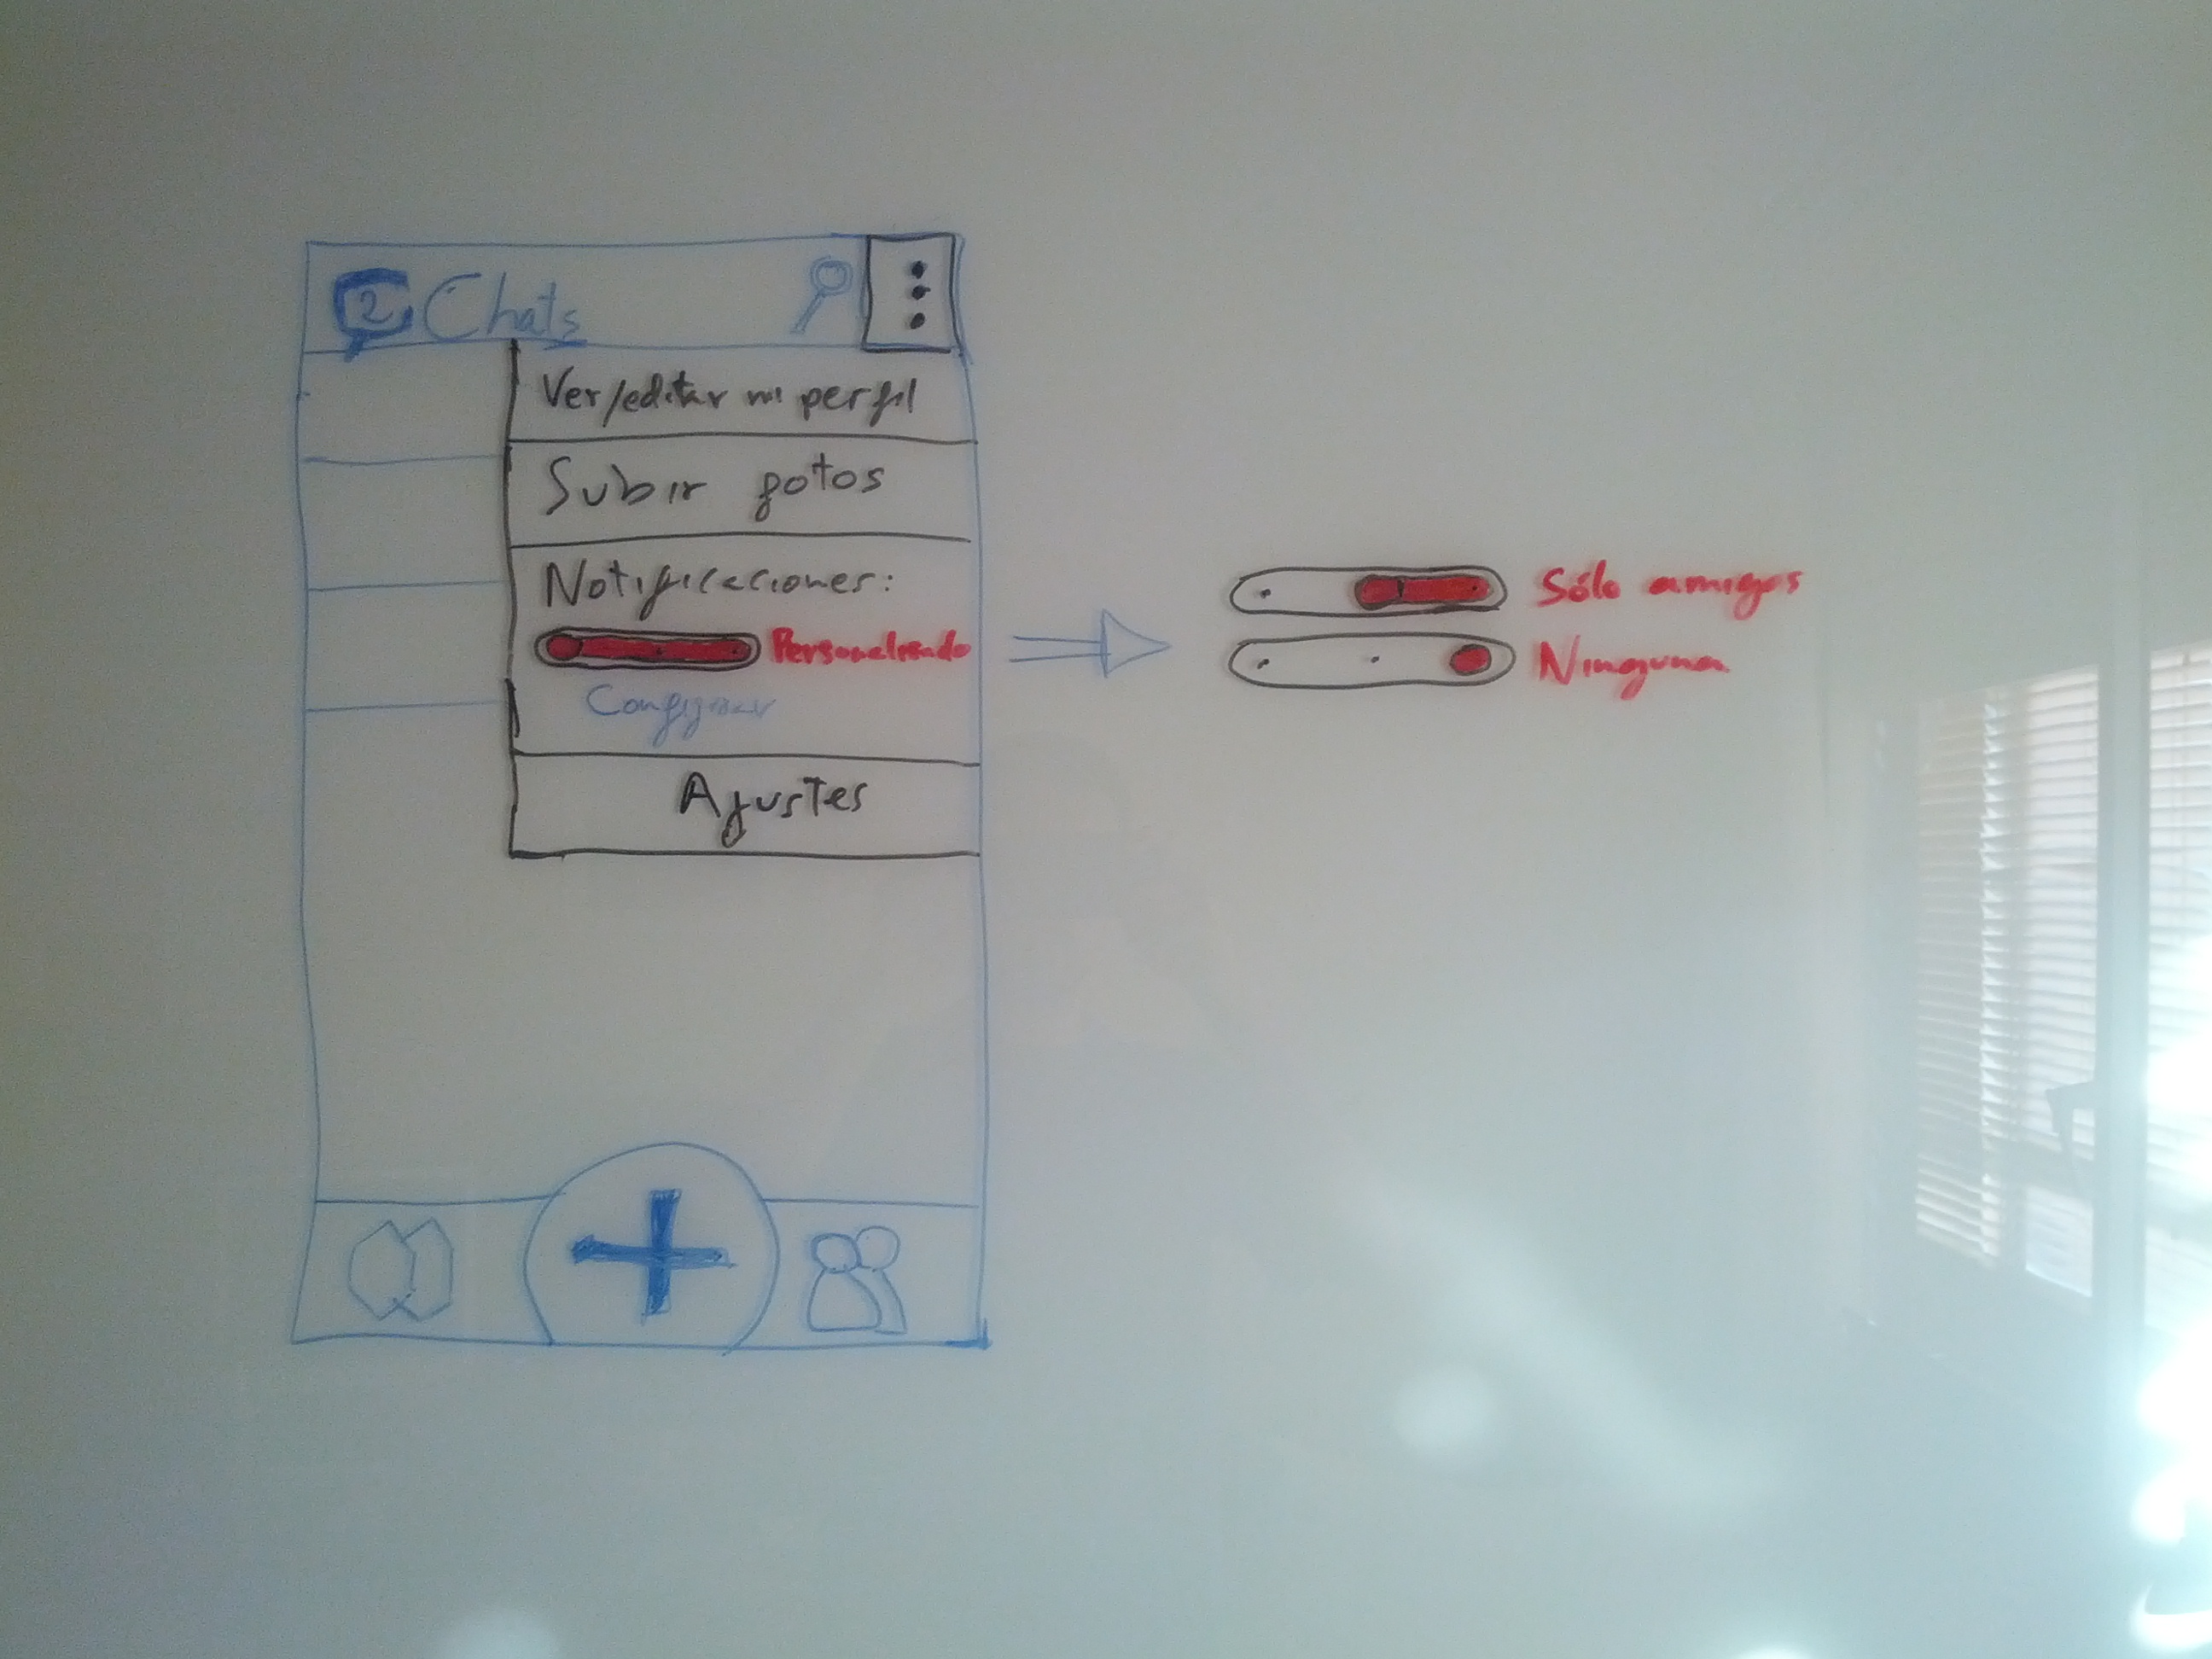 2 Chats
Ver/editar mi perfil
Subir fotos
Notificaciones:
Personalizado
Configurar
Ajustes
Sólo amigos
Ninguna